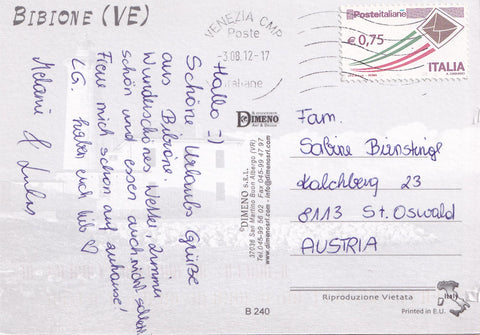 BIBIONE (VE)
Hallo :-)
Schöne Urlaubs Grüße
aus Bibione.
Wunderschönes Wetter, Zimmer
schön und essen auch nicht schlecht
Freue mich schon auf zuhause!
LG. haben euch lieb ♡
Melanie & Lukas
VENEZIA CMP
Poste
3.08.12-17
Italiane
Posteitaliane
€0,75
ITALIA
DIMENO
DIMENO S.R.L.
37036 San Martino Buon Albergo (VR)
Tel. 045-99 56 02 Fax 045-99 47 97
www.dimenosrl.com info@dimenosrl.com
Fam.
Sabine Bienstingl
Kalchberg 23
8113 St. Oswald
AUSTRIA
B 240
Riproduzione Vietata
Italy
Printed in E.U.